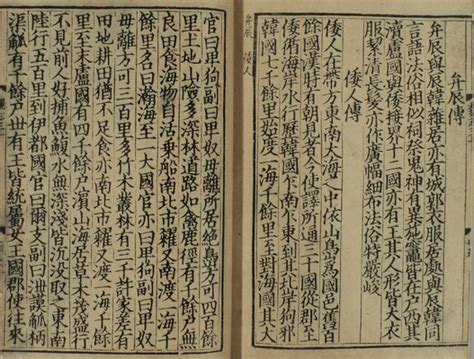 弁辰傳
弁辰與辰韓雜居亦有城郭衣服居處與辰韓同
言語法俗相似祠祭鬼神有異施竈皆在戶西其
瀆盧國與倭接界十二國亦有王其人形皆大衣
服絜清長髮亦作廣幅細布法俗特嚴峻
倭人傳
倭人在帶方東南大海之中依山島爲國邑舊百
餘國漢時有朝見者今使譯所通三十國從郡至
倭循海岸水行歷韓國乍南乍東到其北岸狗邪
韓國七千餘里始度一海千餘里至對海國其大
官曰卑狗副曰卑奴毋離所居絶島方可四百餘
里土地山險多深林道路如禽鹿徑有千餘戶無
良田食海物自活乗船南北市糴又南渡一海千
餘里名曰瀚海至一大國官亦曰卑狗副曰卑奴
毋離方可三百里多竹木叢林有三千許家差有
田地耕田猶不足食亦南北市糴又渡一海千餘
里至末盧國有四千餘戶濱山海居草木茂盛行
不見前人好捕魚鰒水無深淺皆沈沒取之東南
陸行五百里到伊都國官曰爾支副曰泄謨觚柄
渠觚有千餘戶丗有王皆統屬女王國郡使往來